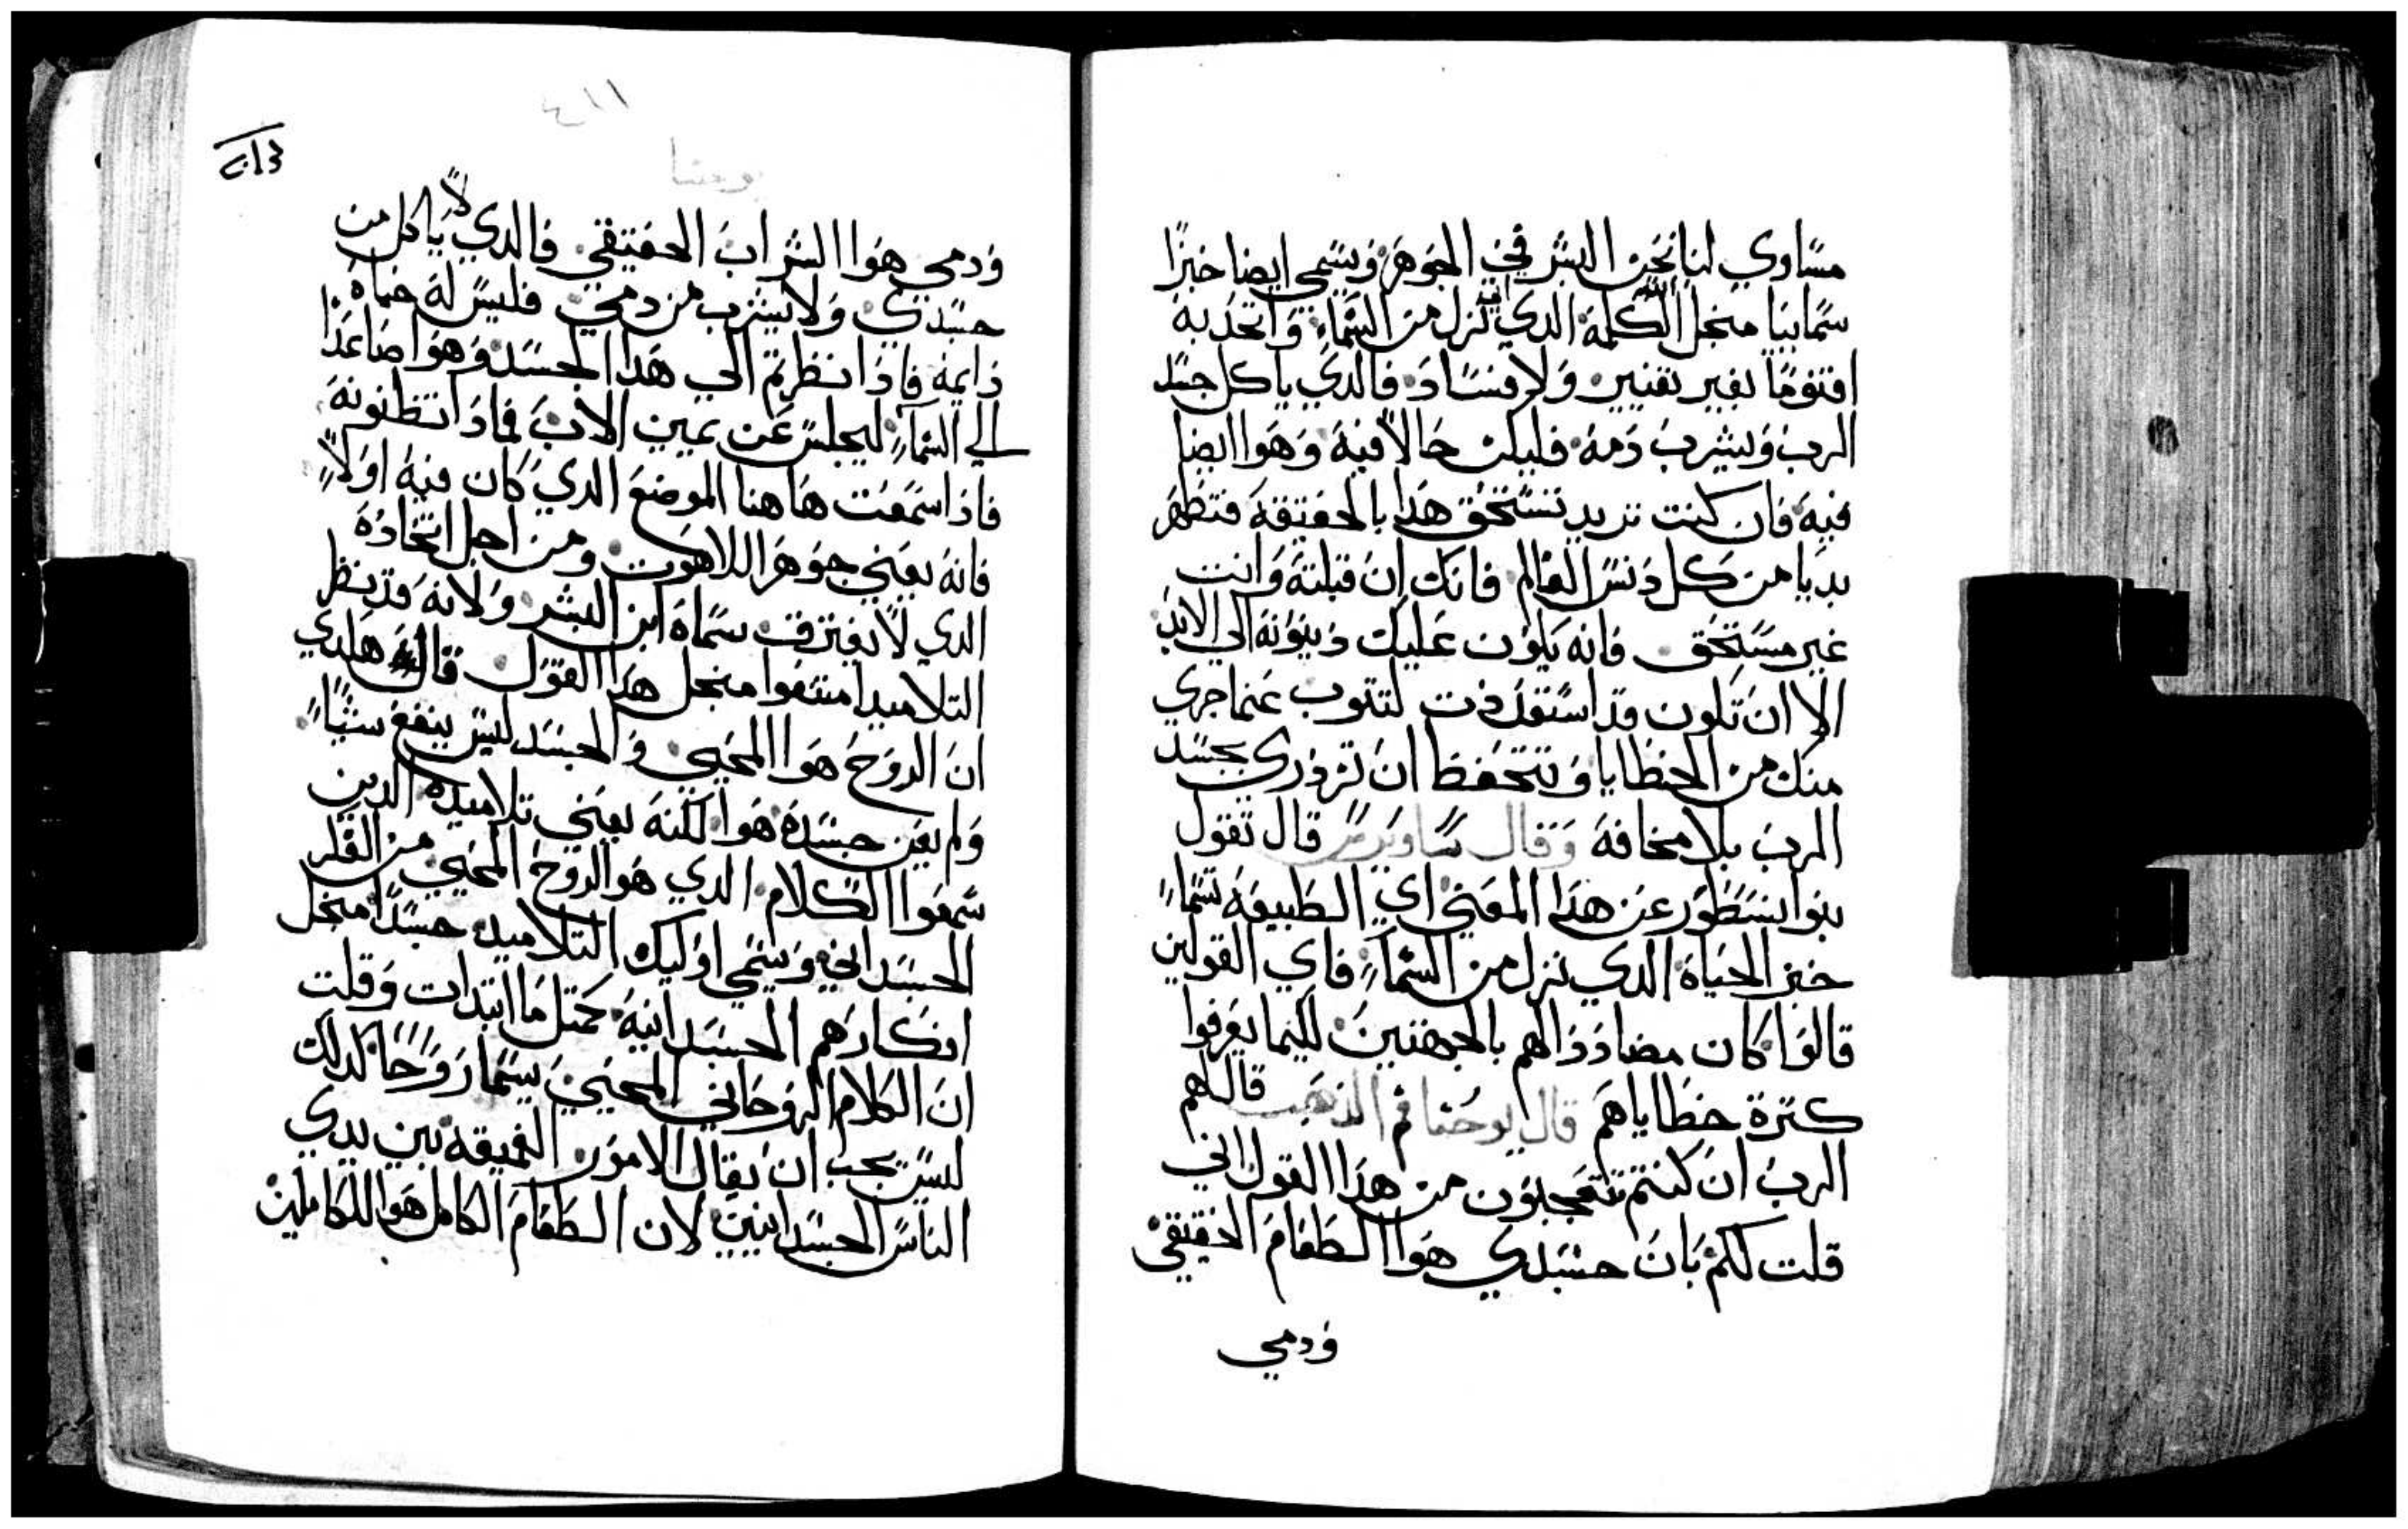 مساوي لنا نحن البشر في الجوهر ويسمي ايضا خبزا
سمايا منجل الكلمة الدي نزل من السماء واتحد به
اقنوما بغير تغيير ولا فساد فالدي ياكل جسد
الرب ويشرب دمه فليكن حالا فيه وهوا ايضا
فيه فان كنت تريد تستحق هدا بالحقيقة فتطهر
بديا من كل دنس العالم فانك ان قبلته وانت
غير مستحق فانه يكون عليك دينونة الي الابد
الا ان تكون قد استعددت لتتوب عنما جري
منك من الخطايا وتتحفظ ان تزدري بجسد
الرب بلا مخافة وقال ساويرس قال تقول
بنوا نسطور عن هدا المعني اي الطبيعة تسما
خبز الحياة الدي نزل من السماء فاي القولين
قالوا كان مضاددا لهم بالجهتين لكيما يعرفوا
كترة خطاياهم قال يوحنا فم الدهب قال لهم
الرب ان كنتم تتعجبون من هدا القول اني
قلت لكم بان جسدي هوا الطعام الحقيقي
ودمي
يوحنا
ودمي هوا الشراب الحقيقي فالدي لا ياكل من
جسدي ولا يشرب من دمي فليس له حياة
دايمة فادا نظرتم الي هدا الجسد وهوا صاعدا
الي السماء ليجلس عن يمين الاب فمادا تظنونه
فادا سمعت هاهنا الموضع الدي كان فيه اولا
فانه يعني جوهر اللاهوت ومن اجل اتحاده
الدي لا يفترق سماه ابن البشر ولانه قد نظر
التلاميد امتنعوا منجل هدا القول قال هلدي
ان الروح هوا المحيي والجسد ليس ينفع شيا
ولم يعني جسده هوا لكنه يعني تلاميده الدين
سمعوا الكلام الدي هو الروح المحيي من الفكر
الجسداني ويسمي اوليك التلاميد جسدا منجل
افكارهم الجسدانية كمتل ما ابتدات وقلت
ان الكلام الروحاني المحيي يسما روحا كدلك
ليس يجب ان يقال الامور العميقة بين يدي
الناس الجسدانيين لان الطعام الكامل هوا للكاملين